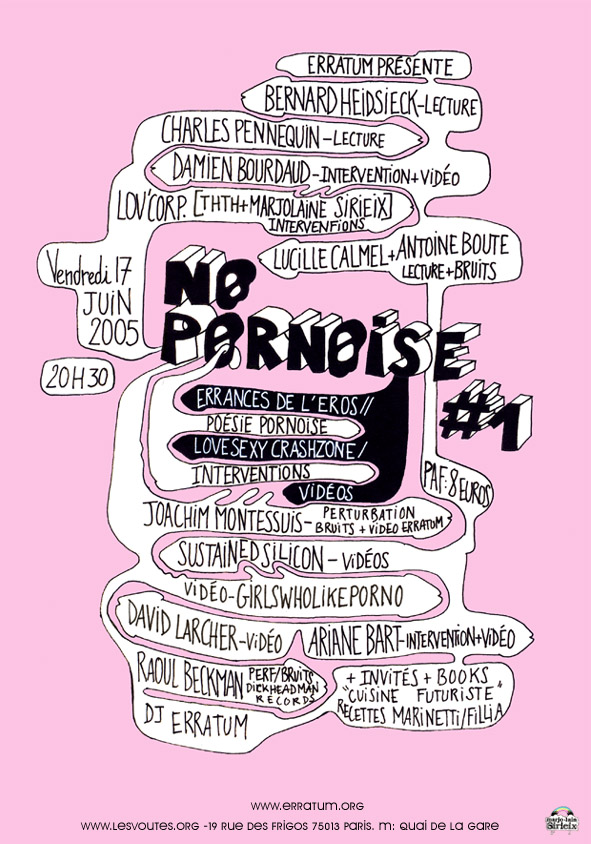 ERRATUM PRÉSENTE
BERNARD HEIDSIECK-LECTURE
CHARLES PENNEQUIN-LECTURE
DAMIEN BOURDAUD-INTERVENTION+VIDÉO
LOV'CORP. [THTH+MARJOLAINE SIRIEIX]
INTERVENTIONS
LUCILLE CALMEL+ANTOINE BOUTE
LECTURE+BRUITS
Vendredi 17
JUIN
2005
20H30
NO
PORNOISE
#1
ERRANCES DE L'EROS//
POÉSIE PORNOISE
LOVESEXY CRASHZONE/
INTERVENTIONS
VIDÉOS
PAF: 8 EUROS
JOACHIM MONTESSUIS-PERTURBATION
BRUITS + VIDEO ERRATUM
SUSTAINED SILICON-VIDÉOS
VIDÉO-GIRLSWHOLIKEPORNO
DAVID LARCHER-VIDÉO
ARIANE BART-INTERVENTION+VIDÉO
RAOUL BECKMAN PERF/BRUITS
DICKHEADMAN
RECORDS
+ INVITÉS + BOOKS
"CUISINE FUTURISTE"
RECETTES MARINETTI/FILLIA
DJ ERRATUM
www.erratum.org
www.lesvoutes.org -19 rue des frigos 75013 Paris. m: Quai de la gare
marjo-lain
sirieix